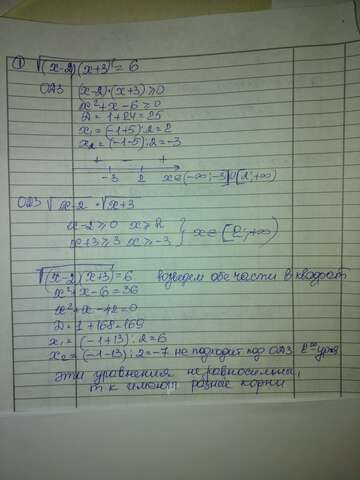 ① √(x-2)(x+3) = 6
ОДЗ (x-2)·(x+3) ≥ 0
x²+x-6 ≥ 0
D = 1+24 = 25
x₁ = (-1+5):2 = 2
x₂ = (-1-5):2 = -3
+ - +
-3 2 x∈(-∞;-3]U[2;+∞)
ОДЗ √x-2 · √x+3
x-2 ≥ 0 x ≥ 2
x+3 ≥ 3 x ≥ -3 } x∈[2;+∞)
√(x-2)(x+3) = 6 возведем обе части в квадрат
x²+x-6 = 36
x²+x-42 = 0
D = 1+168 = 169
x₁ = (-1+13):2 = 6
x₂ = (-1-13):2 = -7 не подходит под ОДЗ 2ᵒᵍᵒ ур-я
эти уравнения неравносильны,
т к имеют разные корни